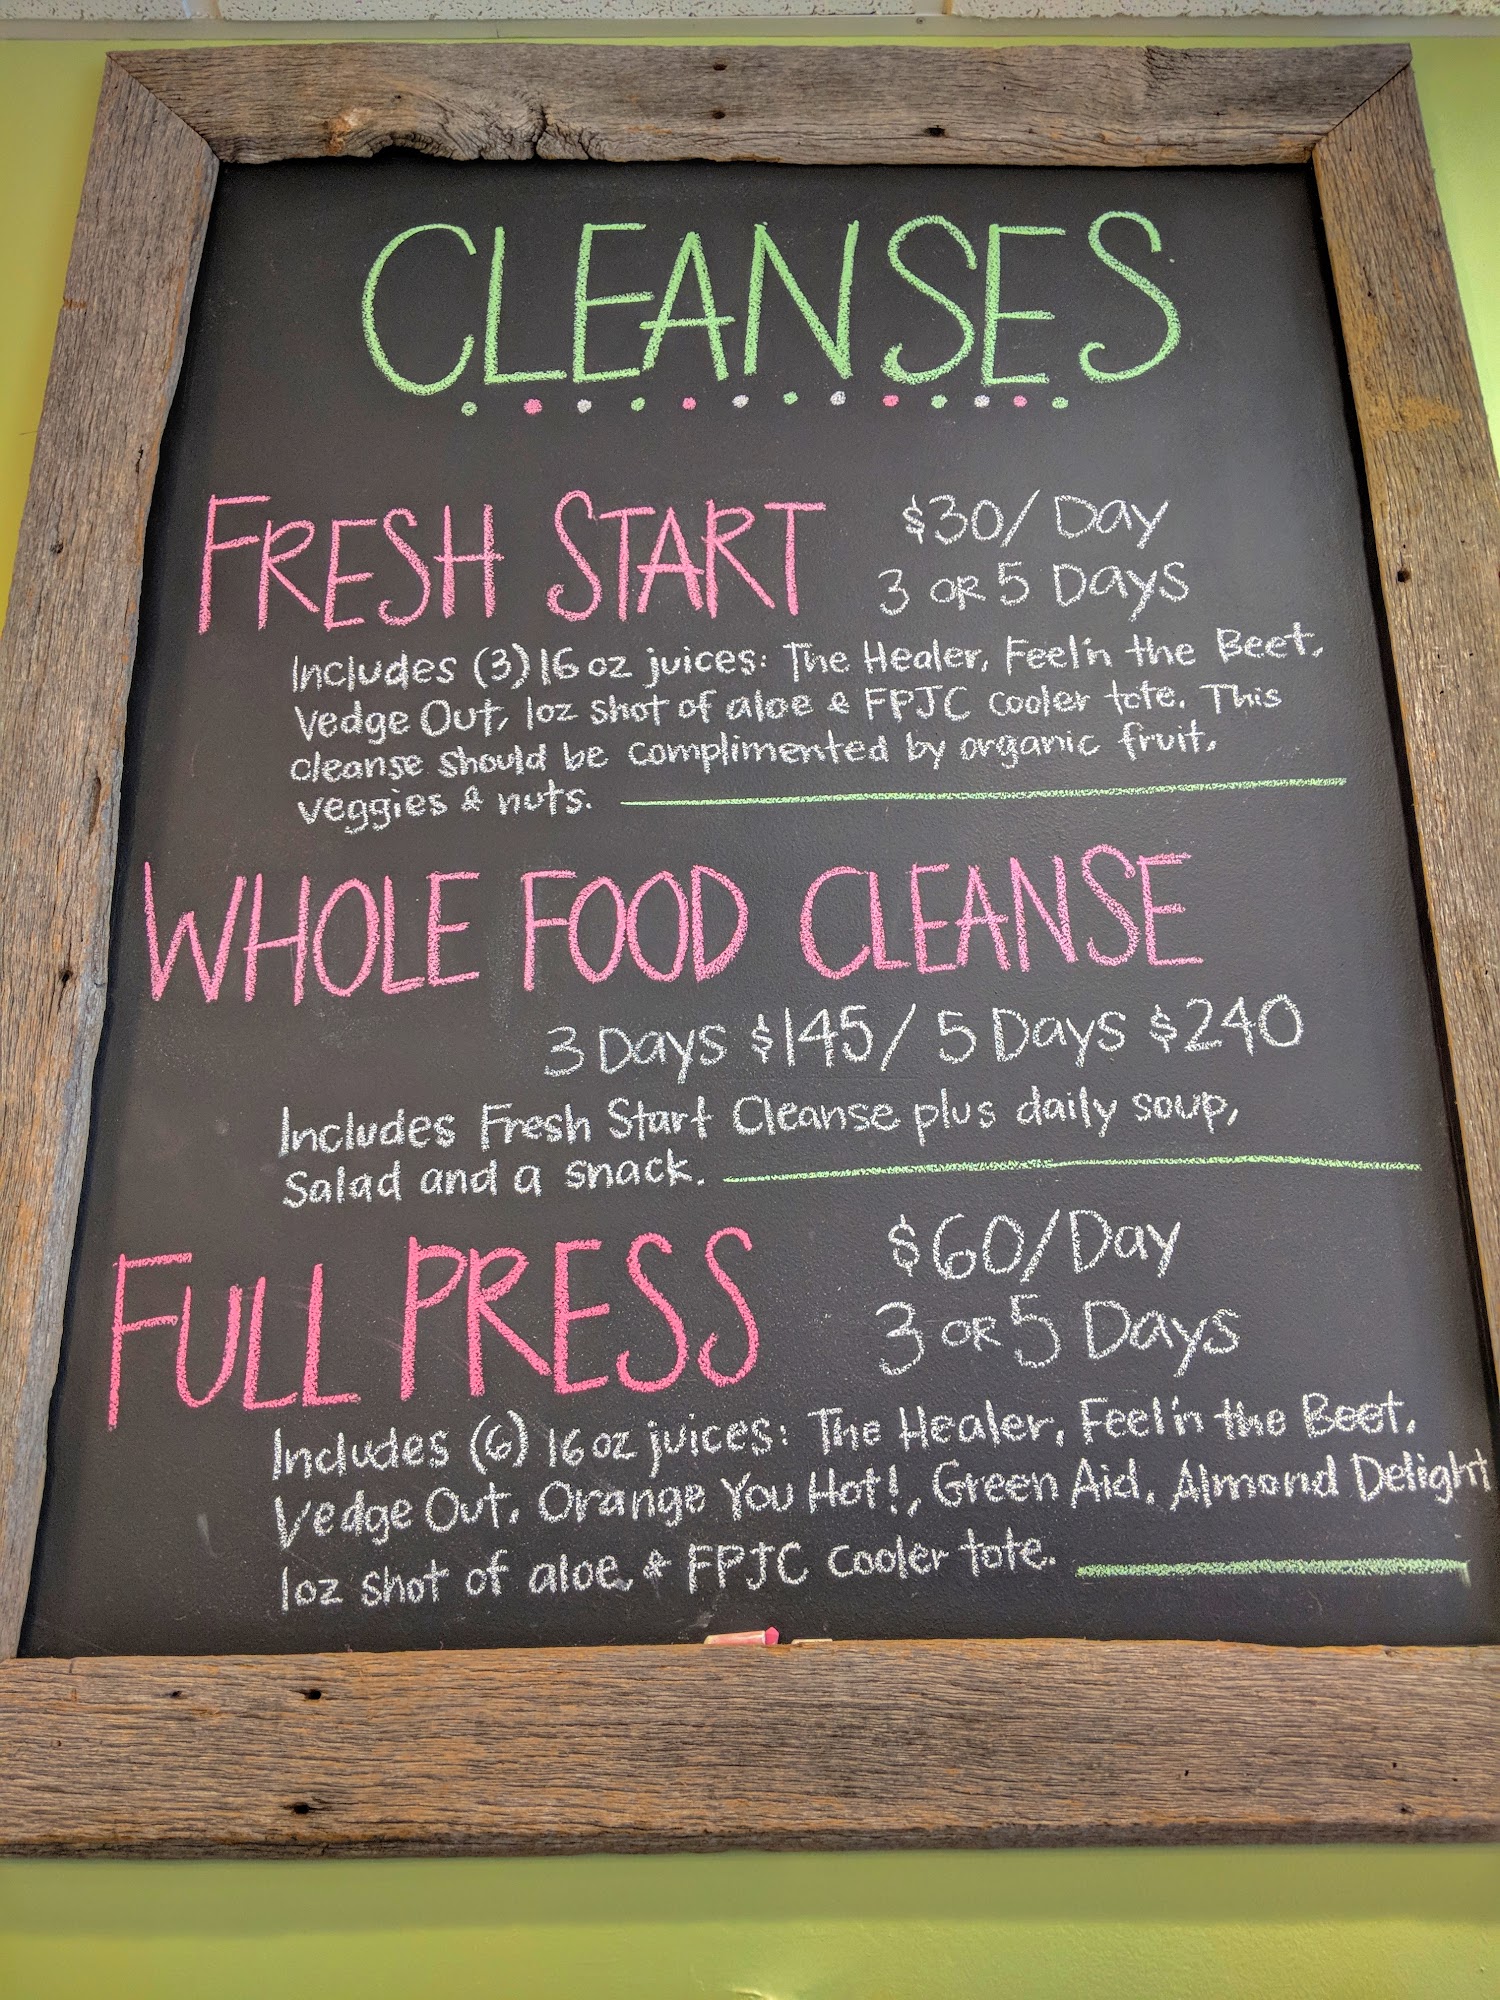 CLEANSES
FRESH START $30/Day
3 OR 5 Days
Includes (3) 16 oz juices: The Healer, Feel'n the Beet,
Vedge Out, 1oz shot of aloe & FPJC cooler tote. This
cleanse should be complimented by organic fruit,
veggies & nuts.
WHOLE FOOD CLEANSE
3 Days $145/ 5 Days $240
Includes Fresh Start Cleanse plus daily soup,
Salad and a snack.
FULL PRESS $60/Day
3 OR 5 Days
Includes (6) 16 oz juices: The Healer, Feel'n the Beet,
Vedge Out, Orange You Hot!, Green Aid, Almond Delight
1oz shot of aloe & FPJC cooler tote.